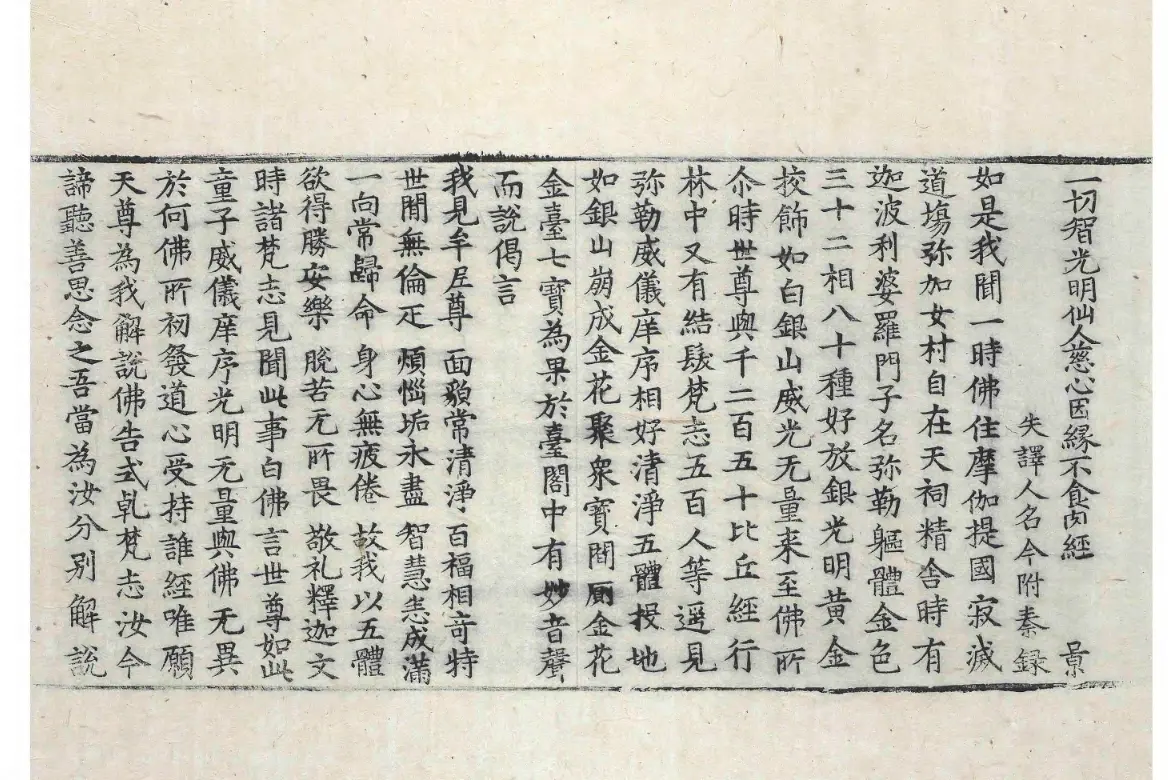 一切智光明仙人慈心因緣不食肉經　景
失譯人名今附秦録
如是我聞一時佛住摩伽提國寂滅
道塲弥加女村自在天祠精舍時有
迦波利婆羅門子名弥勒軀體金色
三十二相八十種好放銀光明黄金
挍飾如白銀山威光无量来至佛所
尒時世尊與千二百五十比丘經行
林中又有結髮梵志五百人等遥見
弥勒威儀庠序相好清淨五體投地
如銀山崩成金花聚衆寶間厠金花
金臺七寶為果於臺閣中有妙音聲
而說偈言
我見牟尼尊　面貌常清淨　百福相竒特
世間無倫疋　煩惱垢永盡　智慧悉成滿
一向常歸命　身心無疲倦　故我以五體
欲得勝安樂　脫苦无所畏　敬礼釋迦文
時諸梵志見聞此事白佛言世尊如此
童子威儀庠序光明无量與佛无異
於何佛所初發道心受持誰經唯願
天尊為我解說佛告式乹梵志汝今
諦聽善思念之吾當為汝分別解說